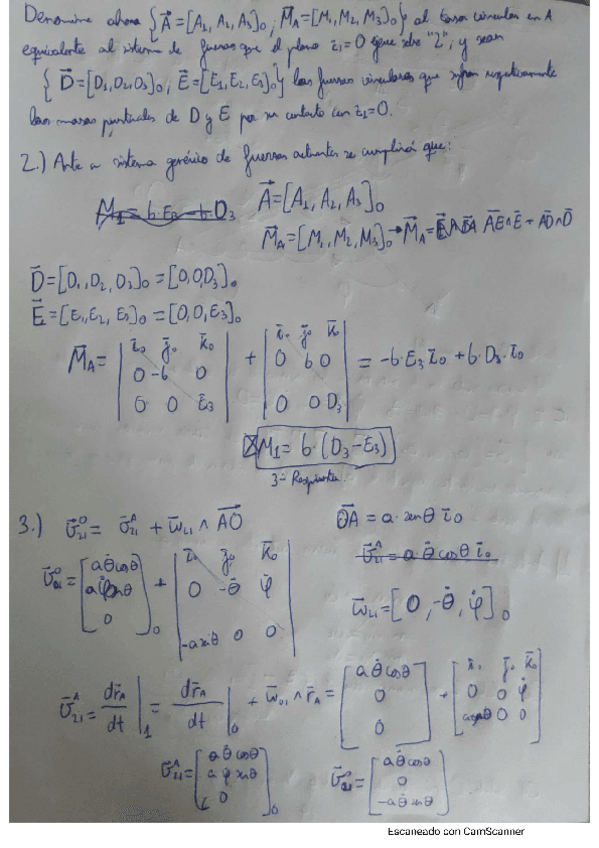 Denomine ahora {A⃗=[A₁, A₂, A₃]₀; M⃗_A=[M₁, M₂, M₃]₀} al torsor vincular en A
equivalente al sistema de fuerzas que el plano z₁=0 ejerce sobre "2", y sean
{D⃗=[D₁, D₂, D₃]₀; E⃗=[E₁, E₂, E₃]₀} las fuerzas vinculares que sufren respectivamente
las masas puntuales de D y E por su contacto con z₁=0.
2.) Ante sistema genérico de fuerzas actuantes se cumplirá que:
M₁ = b E₃ - b D₃ A⃗=[A₁, A₂, A₃]₀
M⃗_A=[M₁, M₂, M₃]₀ → M⃗_A= A⃗E∧E⃗ + A⃗D∧D⃗
D⃗=[D₁, D₂, D₃]₀=[0,0,D₃]₀
E⃗=[E₁, E₂, E₃]₀=[0,0,E₃]₀
M⃗_A = | i₀ j₀ k₀ | + | i₀ j₀ k₀ | = -b·E₃ i₀ + b·D₃·i₀
0 -b 0 0 b 0
0 0 E₃ 0 0 D₃
M₁ = b·(D₃-E₃)
3ª Respuesta
3.) v̄₂₁^O = v̄₂₁^A + ω̄₂₁ ∧ A⃗O O⃗A = a·senθ i₀
v̄₂₁^A = a·θ̇ cosθ i₀
v̄₂₁^O = [aθ̇cosθ, aφ̇senθ, 0]₀ + | i₀ j₀ k₀ |
0 -θ̇ φ̇ ω̄₂₁=[0, -θ̇, φ̇]₀
-a senθ 0 0
v̄₂₁^A = dr̄_A/dt |₁ = dr̄_A/dt |₀ + ω̄₀₁ ∧ r̄_A = [aθ̇cosθ, 0, 0] + [i₀ j₀ k₀
0 0 φ̇
a senθ 0 0]
v̄₂₁^A = [aθ̇cosθ, aφ̇senθ, 0]₀ v̄₂₁^O = [aθ̇cosθ, 0, -aθ̇senθ]
Escaneado con CamScanner